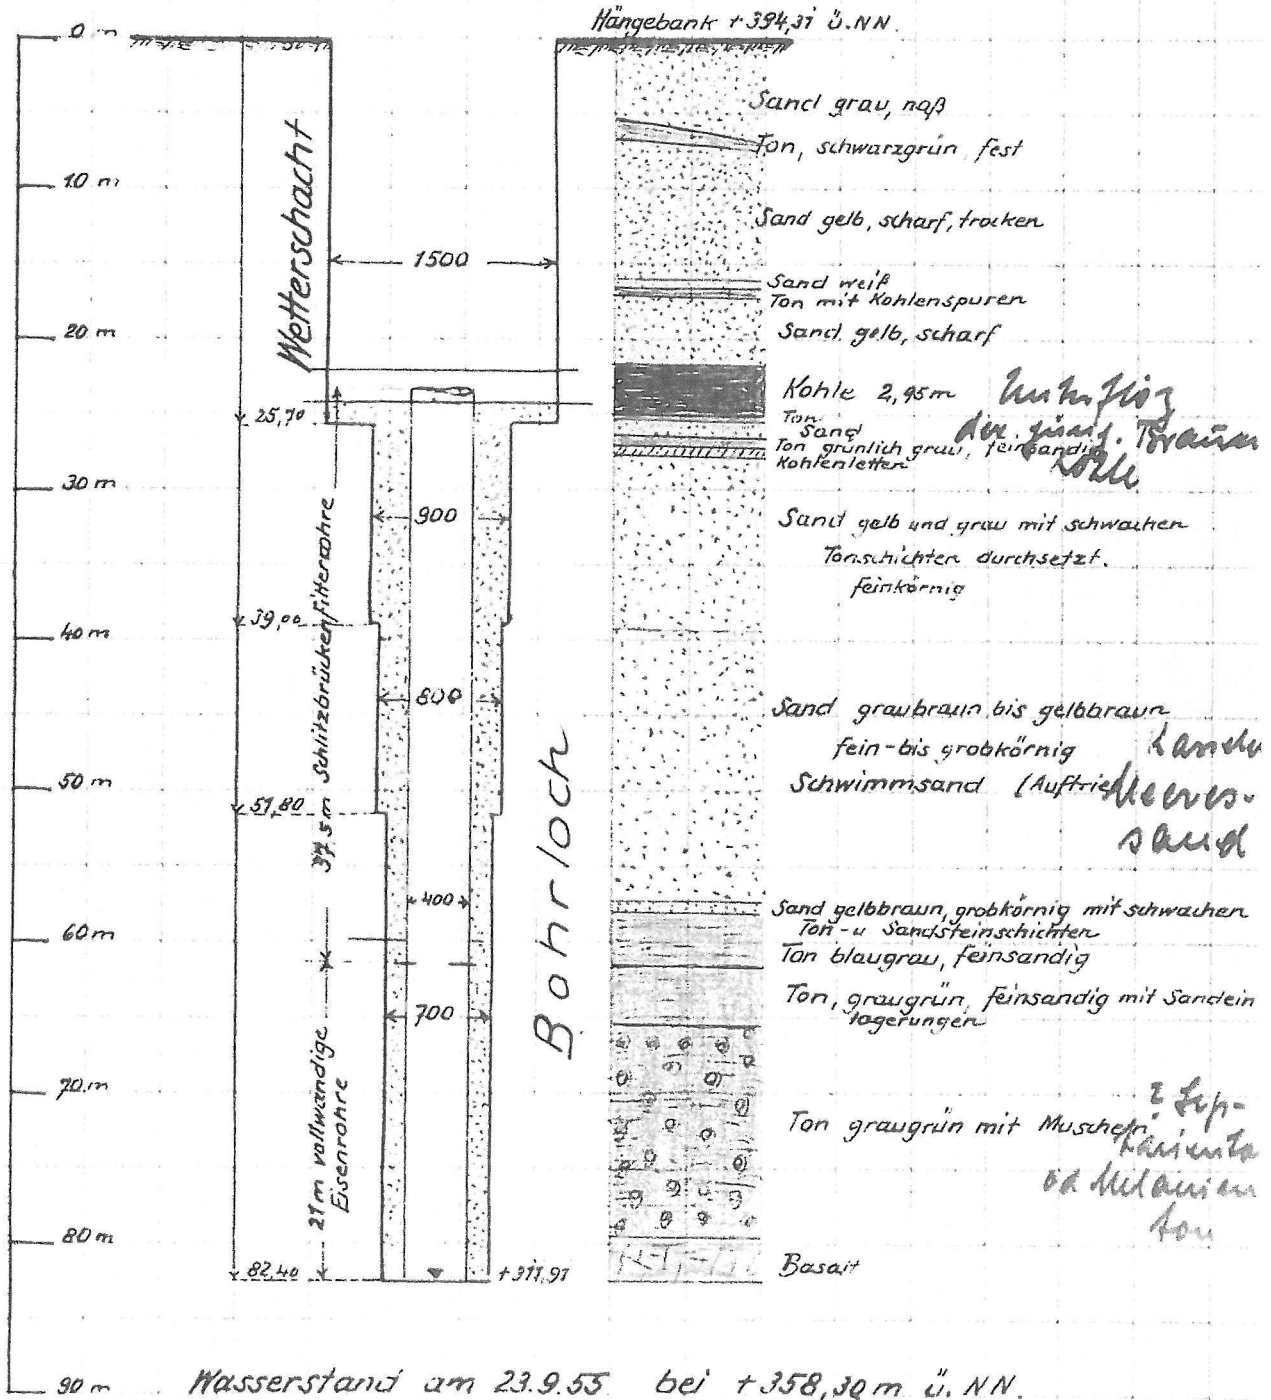 Hängebank + 394,31 ü.NN.
0 m
10 m
20 m
30 m
40 m
50 m
60 m
70 m
80 m
90 m
Wetterschacht
1500
25,70
900
39,00
800
51,80
400
700
82,40
+311,91
37,5 m Schlitzbrückenfilterrohre
21 m vollwandige
Eisenrohre
Bohrloch
Sand grau, naß
Ton, schwarzgrün fest
Sand gelb, scharf, trocken
Sand weiß
Ton mit Kohlenspuren
Sand gelb, scharf
Kohle 2,95 m
der jüng. Braun
kohle
Ton
Sand
Ton grünlich grau, feinsandig
Kohlenletten
Sand gelb und grau mit schwachen
Tonschichten durchsetzt.
feinkörnig
Sand graubraun bis gelbbraun
fein-bis grobkörnig
Schwimmsand (Auftrieb
Meeres-
sand
Sand gelbbraun, grobkörnig mit schwachen
Ton-u Sandsteinschichten
Ton blaugrau, feinsandig
Ton, graugrün, feinsandig mit Sandein
lagerungen
Ton graugrün mit Muscheln
? Sep-
tariento
od Melanien
ton
Basalt
Wasserstand am 23.9.55 bei +358,30 m ü. NN.